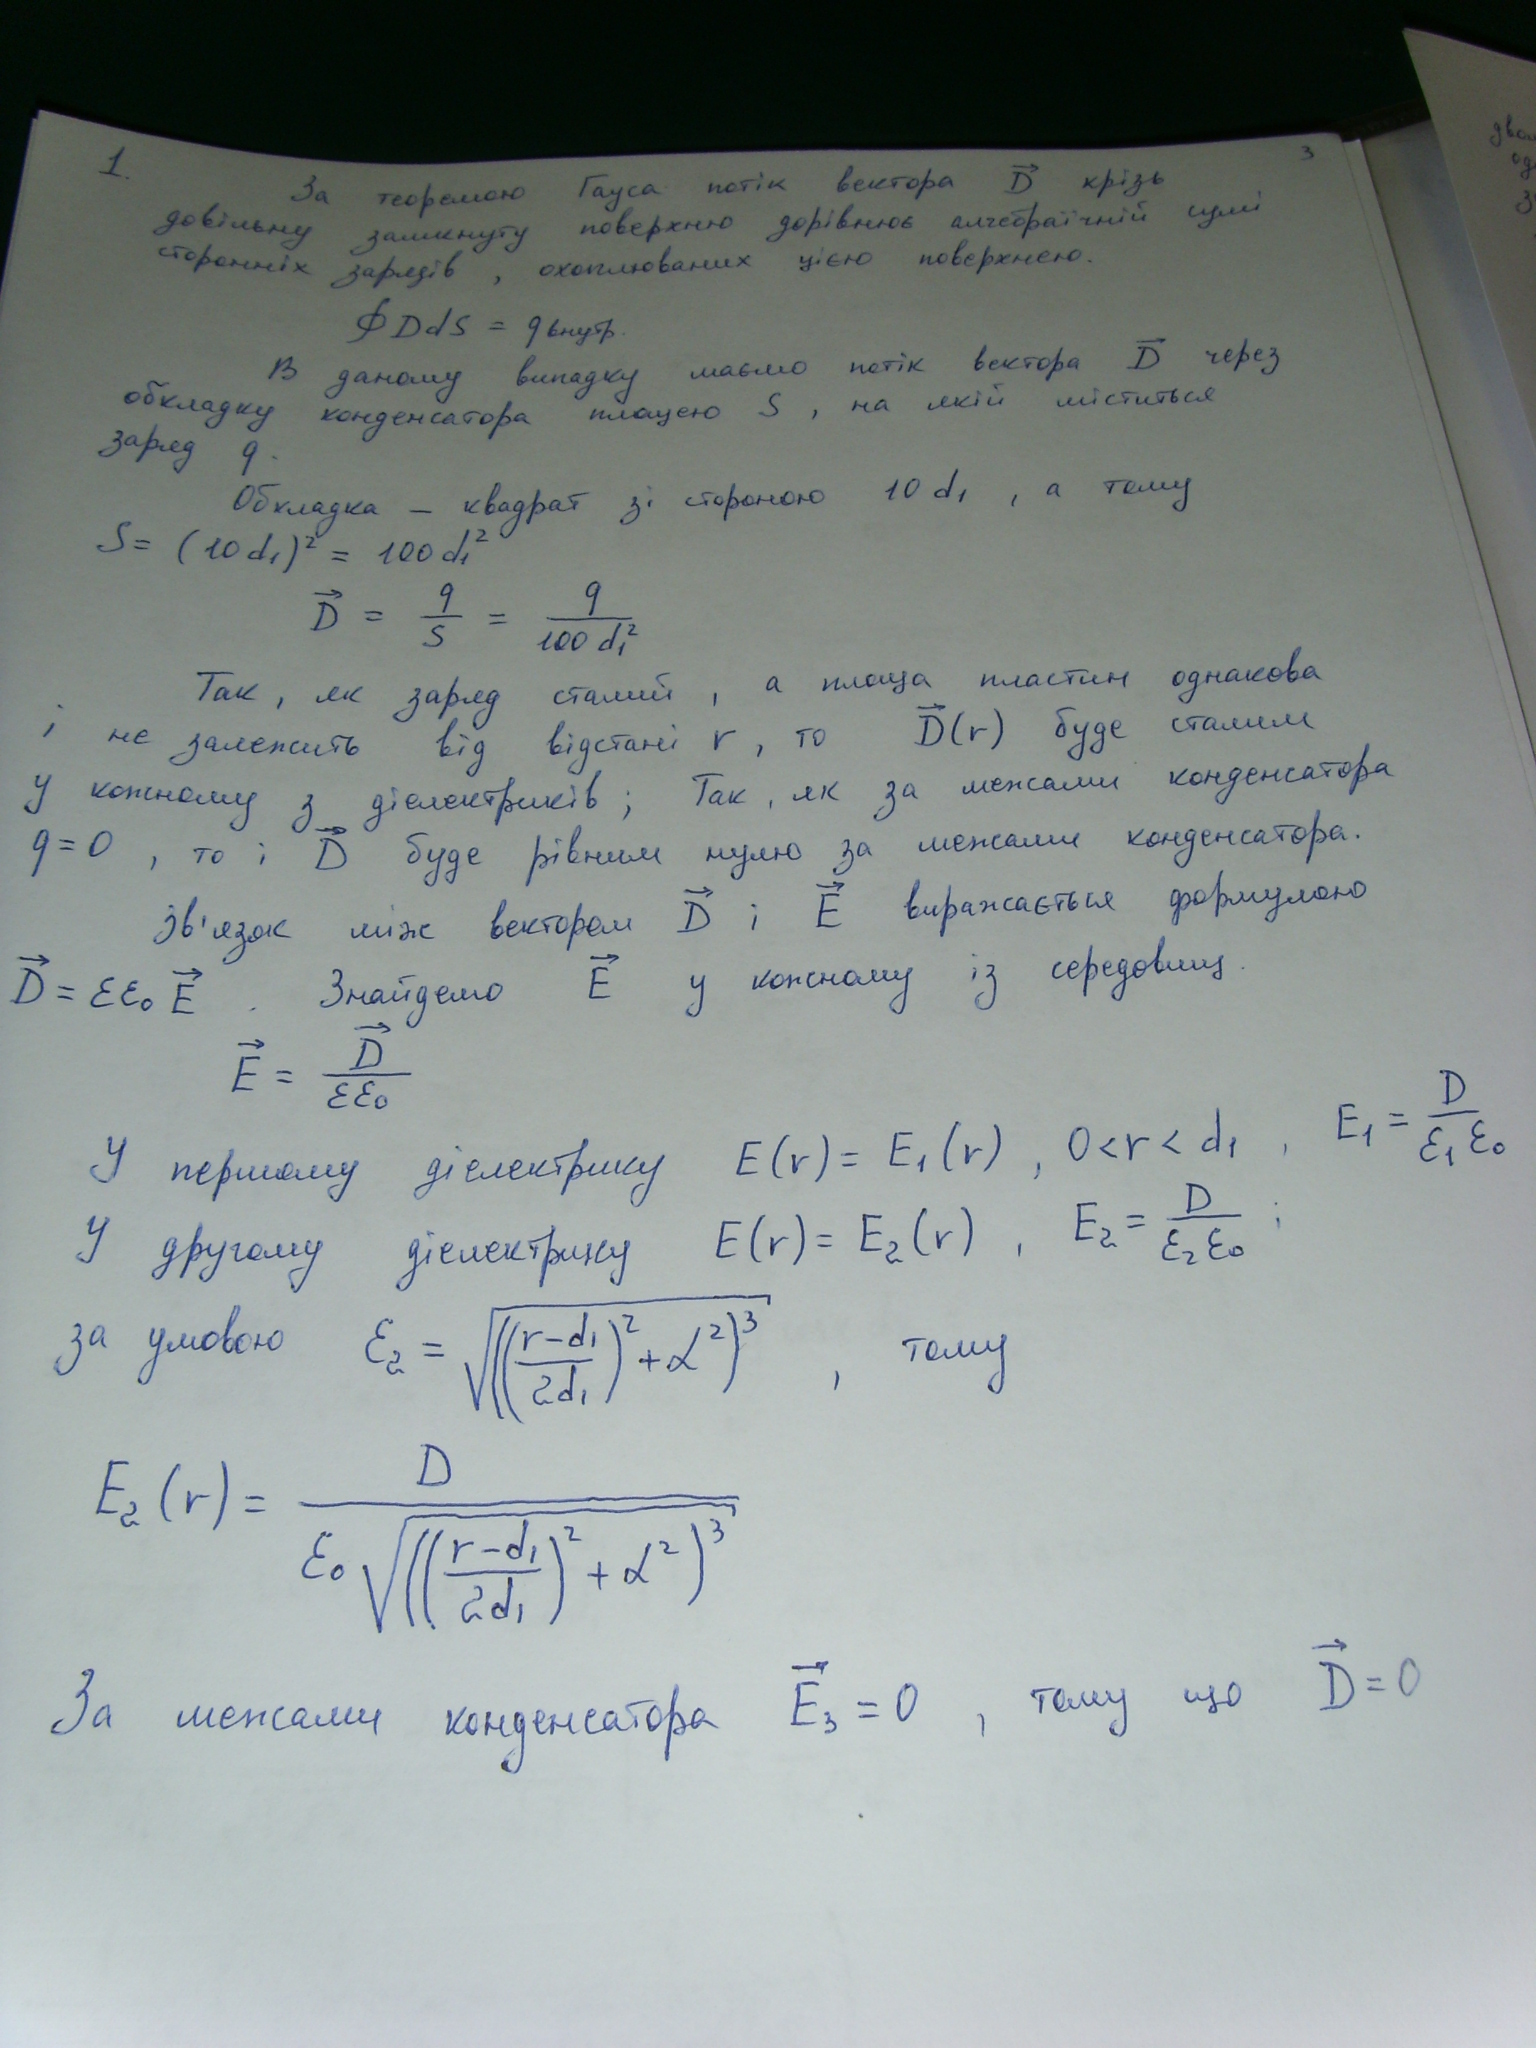 3
1.
За теоремою Гауса потік вектора D⃗ крізь
довільну замкнуту поверхню дорівнює алгебраїчній сумі
сторонніх зарядів, охоплюваних цією поверхнею.
∮DdS = qвнутр.
В даному випадку маємо потік вектора D⃗ через
обкладку конденсатора площею S, на якій міститься
заряд q.
Обкладка – квадрат зі стороною 10d₁, а тому
S = (10d₁)² = 100d₁²
D⃗ = q/S = q/(100d₁²)
Так, як заряд сталий, а площа пластин однакова
і не залежить від відстані r, то D⃗(r) буде сталим
у кожному з діелектриків; Так, як за межами конденсатора
q=0, то і D⃗ буде рівним нулю за межами конденсатора.
Зв'язок між вектором D⃗ і E⃗ виражається формулою
D⃗ = εε₀E⃗. Знайдемо E⃗ у кожному із середовищ.
E⃗ = D⃗/(εε₀)
У першому діелектрику E(r) = E₁(r), 0<r<d₁, E₁ = D/(ε₁ε₀)
У другому діелектрику E(r) = E₂(r), E₂ = D/(ε₂ε₀);
за умовою ε₂ = √(((r-d₁)/(2d₁))² + α²)³, тому
E₂(r) = D/(ε₀√(((r-d₁)/(2d₁))² + α²)³)
За межами конденсатора E⃗₃ = 0, тому що D⃗ = 0